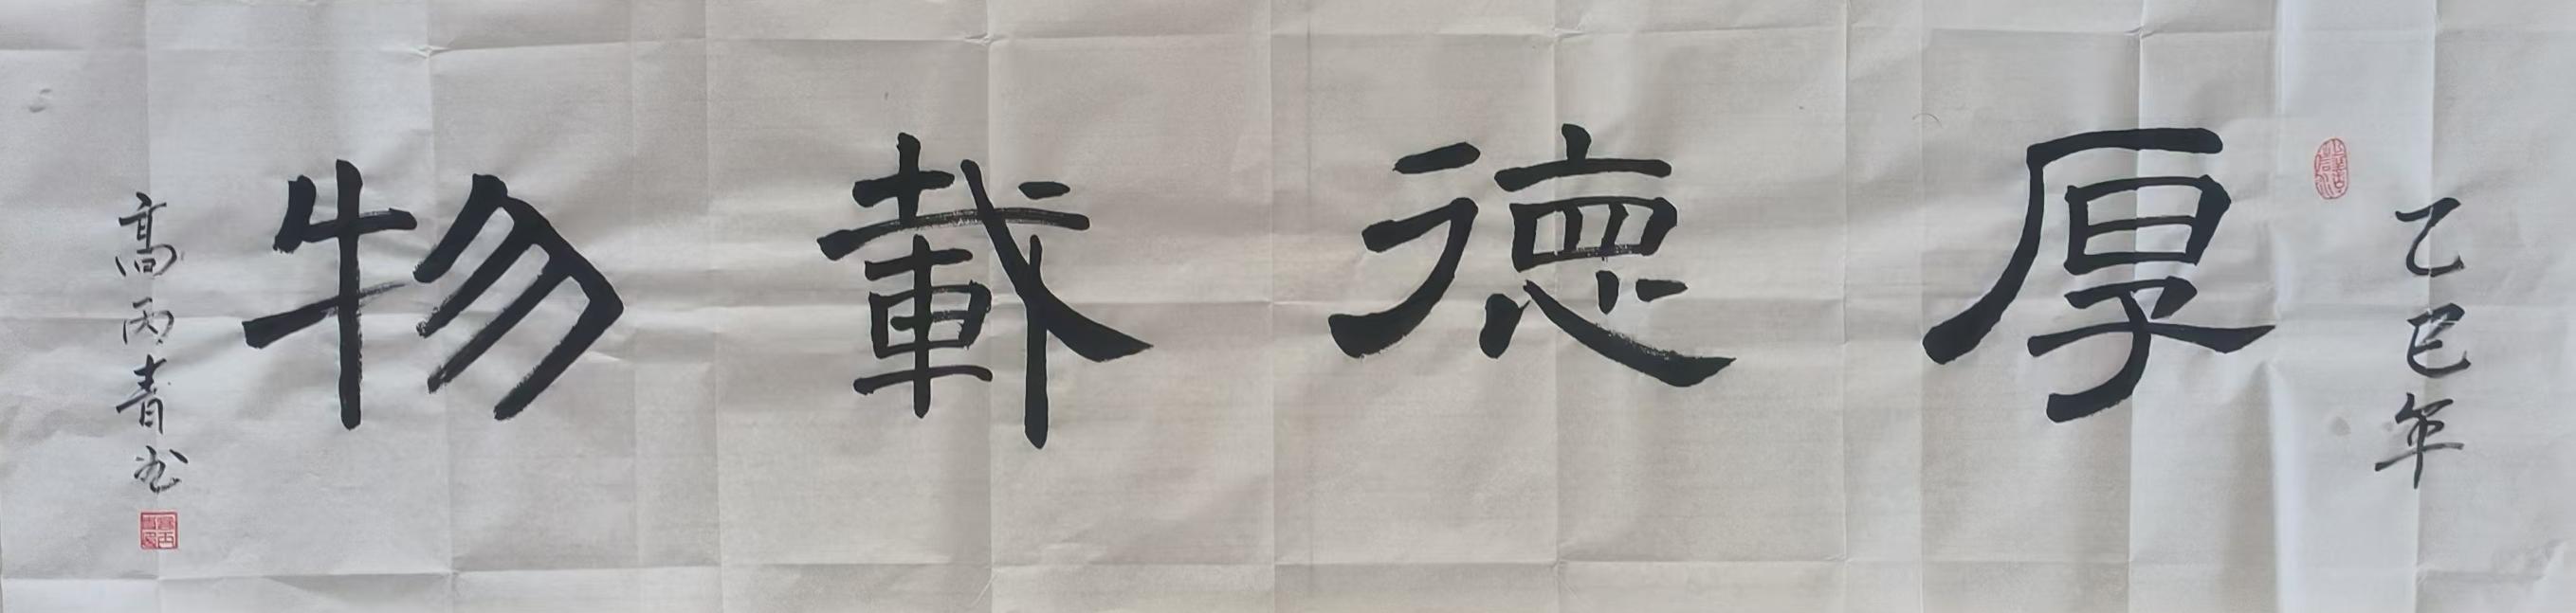 乙巳年
厚德載物
高丙青书